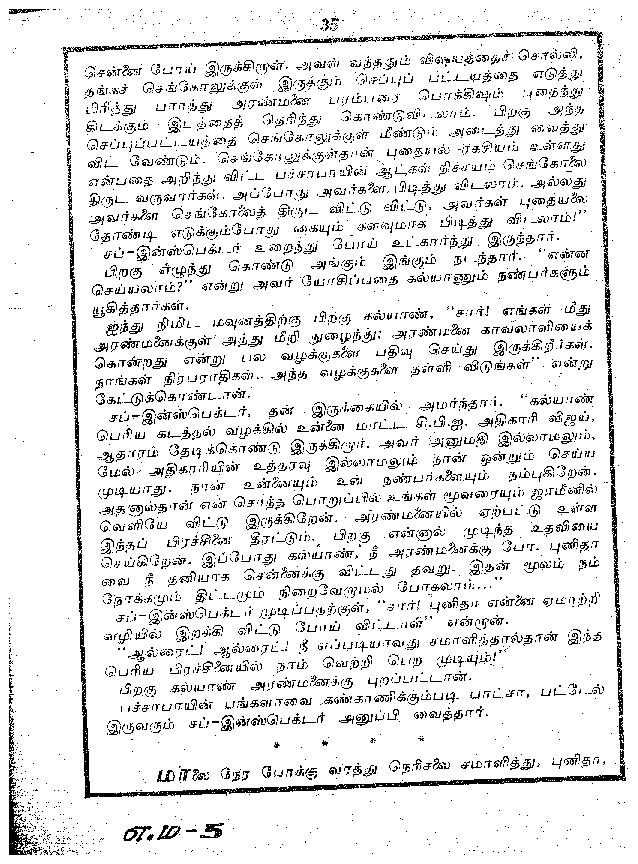 35
சென்னை போய் இருக்கிறாள். அவள் வந்ததும் விஷயத்தைச் சொல்லி,
தங்கச் செங்கோலுக்குள் இருக்கும் செப்புப் பட்டயத்தை எடுத்து
பிரித்து பார்த்து அரண்மனை பரம்பரை பொக்கிஷம் புதைந்து
கிடக்கும் இடத்தைத் தெரிந்து கொண்டுவிடலாம். பிறகு அந்த
செப்புப்பட்டயத்தை செங்கோலுக்குள் மீண்டும் அடைத்து வைத்து
விட வேண்டும். செங்கோலுக்குள்தான் புதையல் ரகசியம் உள்ளது
என்பதை அறிந்து விட்ட பச்சாபாயின் ஆட்கள் நிச்சயம் செங்கோலை
திருட வருவார்கள். அப்போது அவர்களை பிடித்து விடலாம். அல்லது
அவர்களை செங்கோலைத் திருட விட்டு விட்டு, அவர்கள் புதையலை
தோண்டி எடுக்கும்போது கையும் களவுமாக பிடித்து விடலாம்!"
சப்-இன்ஸ்பெக்டர் உறைந்து போய் உட்கார்ந்து இருந்தார்.
பிறகு எழுந்து கொண்டு அங்கும் இங்கும் நடந்தார். "என்ன
செய்யலாம்?" என்று அவர் யோசிப்பதை கல்யாணும் நண்பர்களும்
யூகித்தார்கள்.
ஐந்து நிமிட மவுனத்திற்கு பிறகு கல்யாண், "சார்! எங்கள் மீது
அரண்மனைக்குள் அத்து மீறி நுழைந்து, அரண்மனை காவலாளியைக்
கொன்றது என்று பல வழக்குகளை பதிவு செய்து இருக்கிறீர்கள்.
நாங்கள் நிரபராதிகள். அந்த வழக்குகளை தள்ளி விடுங்கள்" என்று
கேட்டுக்கொண்டான்.
சப்-இன்ஸ்பெக்டர், தன் இருக்கையில் அமர்ந்தார். "கல்யாண்
பெரிய கடத்தல் வழக்கில் உன்னை மாட்ட சி.பி.ஐ. அதிகாரி விஜய்,
ஆதாரம் தேடிக்கொண்டு இருக்கிறார். அவர் அனுமதி இல்லாமலும்,
மேல் அதிகாரியின் உத்தரவு இல்லாமலும் நான் ஒன்றும் செய்ய
முடியாது. நான் உன்னையும் உன் நண்பர்களையும் நம்புகிறேன்.
அதனால்தான் என் சொந்த பொறுப்பில் உங்கள் மூவரையும் ஜாமீனில்
வெளியே விட்டு இருக்கிறேன். அரண்மனையில் ஏற்பட்டு உள்ள
இந்தப் பிரச்சினை தீரட்டும். பிறகு என்னால் முடிந்த உதவியை
செய்கிறேன். இப்போது கல்யாண், நீ அரண்மனைக்கு போ. புனிதா
வை நீ தனியாக சென்னைக்கு விட்டது தவறு. இதன் மூலம் நம்
நோக்கமும் திட்டமும் நிறைவேறாமல் போகலாம்..."
சப்-இன்ஸ்பெக்டர் முடிப்பதற்குள், "சார்! புனிதா என்னை ஏமாற்றி
வழியில் இறக்கி விட்டு போய் விட்டாள்" என்றான்.
"ஆல்ரைட்! ஆல்ரைட்! நீ எப்படியாவது சமாளித்தால்தான் இந்த
பெரிய பிரச்சினையில் நாம் வெற்றி பெற முடியும்!"
பிறகு கல்யாண் அரண்மனைக்கு புறப்பட்டான்.
பச்சாபாயின் பங்களாவை கண்காணிக்கும்படி பாட்சா, பட்டேல்
இருவரும் சப்-இன்ஸ்பெக்டர் அனுப்பி வைத்தார்.
* * * *
மாலை நேர போக்கு வரத்து நெரிசலை சமாளித்து, புனிதா,
எ.ம-3